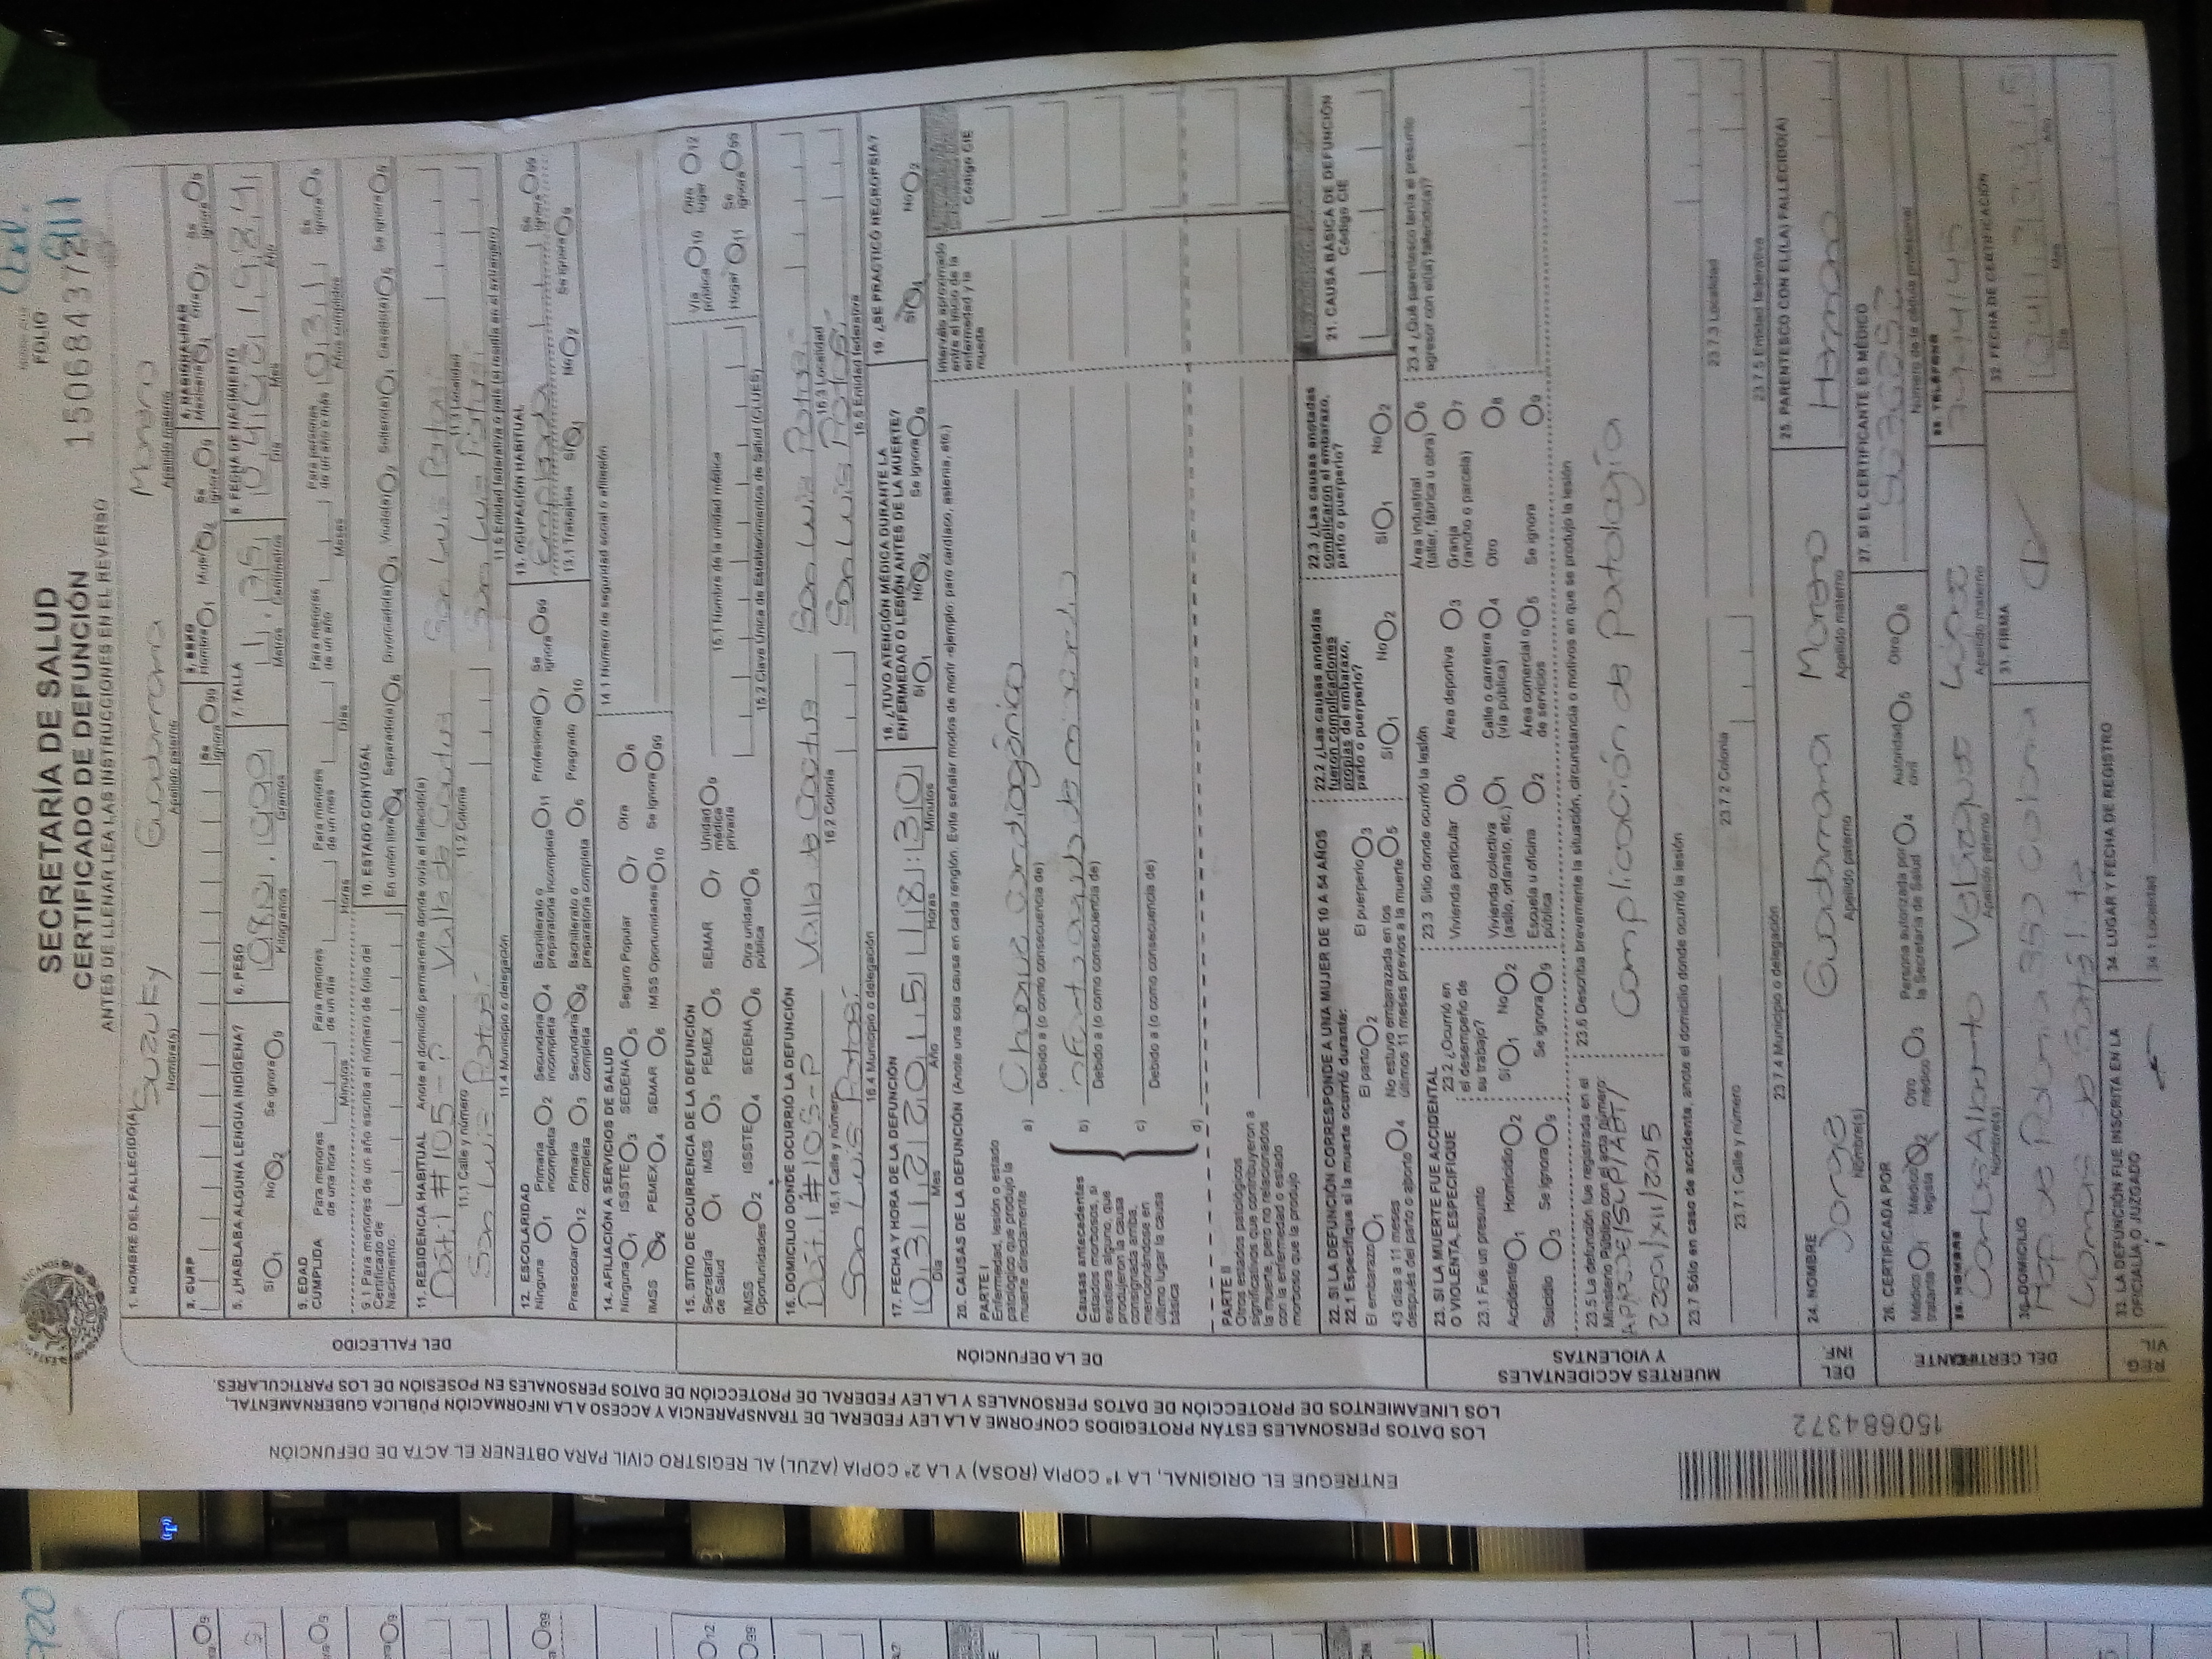 SECRETARÍA DE SALUD
CERTIFICADO DE DEFUNCIÓN
ANTES DE LLENAR LEA LAS INSTRUCCIONES EN EL REVERSO
FOLIO
150684372
DEL FALLECIDO
1. NOMBRE DEL FALLECIDO(A) Suzuky Guadarrama Moreno
Nombre(s) Apellido paterno Apellido materno
2. CURP
3. SEXO Hombre 1 Mujer 2 Se ignora 9
4. NACIONALIDAD Mexicana 1 Otra 2 Se ignora 9
5. ¿HABLABA ALGUNA LENGUA INDÍGENA?
Sí 1 No 2 Se ignora 9
6. PESO
Kilogramos Gramos
7. TALLA 1.75
Metros Centímetros
8. FECHA DE NACIMIENTO
Día Mes Año
9. EDAD CUMPLIDA
Para menores de una hora Minutos
Para menores de un día Horas
Para menores de un mes Días
Para menores de un año Meses
Para personas de un año o más 031 Años cumplidos
Se ignora 9
9.1 Para menores de un año escriba el número de folio del Certificado de Nacimiento
10. ESTADO CONYUGAL
En unión libre 4 Separado(a) 6 Divorciado(a) 3 Viudo(a) 2 Soltero(a) 1 Casado(a) 5 Se ignora 9
11. RESIDENCIA HABITUAL Anote el domicilio permanente donde vivía el fallecido(a)
#105-P Valle de Cactus San Luis Potosí
11.1 Calle y número 11.2 Colonia 11.3 Localidad
San Luis Potosí San Luis Potosí
11.4 Municipio o delegación 11.5 Entidad federativa o país (si residía en el extranjero)
12. ESCOLARIDAD
Ninguna 1 Primaria incompleta 2 Secundaria incompleta 4 Bachillerato o preparatoria incompleta 11 Profesional 7 Se ignora 99
Preescolar 12 Primaria completa 3 Secundaria completa 5 Bachillerato o preparatoria completa 6 Posgrado 10
13. OCUPACIÓN HABITUAL
Se ignora 99
13.1 Trabajaba Sí 1 No 2 Se ignora 9
14. AFILIACIÓN A SERVICIOS DE SALUD
Ninguna 1 ISSSTE 3 SEDENA 5 Seguro Popular 7 Otra 8
IMSS 2 PEMEX 4 SEMAR 6 IMSS Oportunidades 10 Se ignora 99
14.1 Número de seguridad social o afiliación
DE LA DEFUNCIÓN
15. SITIO DE OCURRENCIA DE LA DEFUNCIÓN
Secretaría de Salud 1 IMSS 3 PEMEX 5 SEMAR 7 Unidad médica privada 9
IMSS Oportunidades 2 ISSSTE 4 SEDENA 6 Otra unidad pública 8
15.1 Nombre de la unidad médica
15.2 Clave Única de Establecimientos de Salud (CLUES)
Vía pública 10 Otro lugar 12
Hogar 11 Se ignora 99
16. DOMICILIO DONDE OCURRIÓ LA DEFUNCIÓN
#105-P Valle de Cactus San Luis Potosí
16.1 Calle y número 16.2 Colonia 16.3 Localidad
San Luis Potosí San Luis Potosí
16.4 Municipio o delegación 16.5 Entidad federativa
17. FECHA Y HORA DE LA DEFUNCIÓN
03 12 2015 18:30
Día Mes Año Horas Minutos
18. ¿TUVO ATENCIÓN MÉDICA DURANTE LA ENFERMEDAD O LESIÓN ANTES DE LA MUERTE?
Sí 1 No 2 Se ignora 9
19. ¿SE PRACTICÓ NECROPSIA?
Sí 1 No 2
20. CAUSAS DE LA DEFUNCIÓN (Anote una sola causa en cada renglón. Evite señalar modos de morir ejemplo: paro cardíaco, astenia, etc.)
PARTE I
Enfermedad, lesión o estado patológico que produjo la muerte directamente
a) Choque cardiogénico
Debido a (o como consecuencia de)
Causas antecedentes
Estados morbosos, si existiera alguno, que produjeron la causa consignada arriba, mencionándose en último lugar la causa básica
b) infarto agudo de miocardio
Debido a (o como consecuencia de)
c)
Debido a (o como consecuencia de)
d)
PARTE II
Otros estados patológicos significativos que contribuyeron a la muerte, pero no relacionados con la enfermedad o estado morboso que la produjo
Intervalo aproximado entre el inicio de la enfermedad y la muerte
Código CIE
21. CAUSA BÁSICA DE DEFUNCIÓN
Código CIE
22. SI LA DEFUNCIÓN CORRESPONDE A UNA MUJER DE 10 A 54 AÑOS
22.1 Especifique si la muerte ocurrió durante:
El embarazo 1 El parto 2 El puerperio 3
43 días a 11 meses después del parto o aborto 4 No estuvo embarazada en los últimos 11 meses previos a la muerte 5
22.2 ¿Las causas anotadas fueron complicaciones propias del embarazo, parto o puerperio?
Sí 1 No 2
22.3 ¿Las causas anotadas complicaron el embarazo, parto o puerperio?
Sí 1 No 2
MUERTES ACCIDENTALES Y VIOLENTAS
23. SI LA MUERTE FUE ACCIDENTAL O VIOLENTA, ESPECIFIQUE
23.1 Fue un presunto
Accidente 1 Homicidio 2
Suicidio 3 Se ignora 9
23.2 ¿Ocurrió en el desempeño de su trabajo?
Sí 1 No 2
Se ignora 9
23.3 Sitio donde ocurrió la lesión
Vivienda particular 0 Área deportiva 3 Área industrial (taller, fábrica u obra) 6
Vivienda colectiva (asilo, orfanato, etc.) 1 Calle o carretera (vía pública) 4 Granja (rancho o parcela) 7
Escuela u oficina pública 2 Área comercial o de servicios 5 Otro 8
Se ignora 9
23.4 ¿Qué parentesco tenía el presunto agresor con el(la) fallecido(a)?
23.5 La defunción fue registrada en el Ministerio Público con el acta número:
XII/2015
23.6 Describa brevemente la situación, circunstancia o motivos en que se produjo la lesión
Complicación de patología
23.7 Sólo en caso de accidente, anote el domicilio donde ocurrió la lesión
23.7.1 Calle y número 23.7.2 Colonia 23.7.3 Localidad
23.7.4 Municipio o delegación 23.7.5 Entidad federativa
DEL INF.
24. NOMBRE Jorge Guadarrama Moreno
Nombre(s) Apellido paterno Apellido materno
25. PARENTESCO CON EL(LA) FALLECIDO(A)
Hermano
DEL CERTIFICANTE
26. CERTIFICADA POR
Médico tratante 1 Médico legista 2 Otro médico 3 Persona autorizada por la Secretaría de Salud 4 Autoridad civil 5 Otro 8
27. SI EL CERTIFICANTE ES MÉDICO
Número de la cédula profesional
28. TELÉFONO
29. NOMBRE Carlos Alberto
Nombre(s) Apellido paterno Apellido materno
30. DOMICILIO
31. FIRMA
32. FECHA DE CERTIFICACIÓN
Día Mes Año
REG. CIVIL
33. LA DEFUNCIÓN FUE INSCRITA EN LA OFICIALÍA O JUZGADO
34. LUGAR Y FECHA DE REGISTRO
34.1 Localidad
LOS DATOS PERSONALES ESTÁN PROTEGIDOS CONFORME A LA LEY FEDERAL DE TRANSPARENCIA Y ACCESO A LA INFORMACIÓN PÚBLICA GUBERNAMENTAL,
LOS LINEAMIENTOS DE PROTECCIÓN DE DATOS PERSONALES Y LA LEY FEDERAL DE PROTECCIÓN DE DATOS PERSONALES EN POSESIÓN DE LOS PARTICULARES.
ENTREGUE EL ORIGINAL, LA 1ª COPIA (ROSA) Y LA 2ª COPIA (AZUL) AL REGISTRO CIVIL PARA OBTENER EL ACTA DE DEFUNCIÓN
150684372